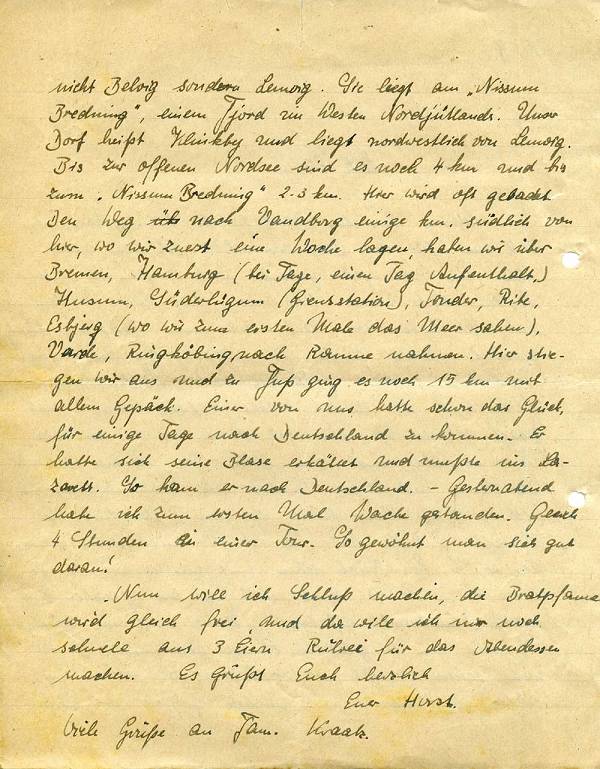 nicht Belvig sondern Lemvig. Sie liegt am „Nissum
Bredning", einem Fjord im Westen Nordjütlands. Unser
Dorf heißt Klinkby und liegt nordwestlich von Lemvig.
Bis zur offenen Nordsee sind es noch 4 km und bis
zum „Nissum Bredning" 2-3 km. Hier wird oft gebadet
Den Weg üb nach Vandborg einige km. südlich von
hier, wo wir zuerst eine Woche lagen, haben wir über
Bremen, Hamburg (bei Tage, einen Tag Aufenthalt,)
Husum, Süderlügum (Grenzstation), Tonder, Ribe,
Esbjerg (wo wir zum ersten Male das Meer sahen),
Varde, Ringköbing nach Ramme nahmen. Hier stie-
gen wir aus und zu Fuß ging es noch 15 km mit
allem Gepäck. Einer von uns hatte schon das Glück,
für einige Tage nach Deutschland zu kommen. Er
hatte sich seine Blase erkältet und mußte ins La-
zarett. So kam er nach Deutschland. - Gesternabend
habe ich zum ersten Mal Wache gestanden. Gleich
4 Stunden in einer Tour. So gewöhnt man sich gut
daran!
Nun will ich Schluß machen, die Bratpfanne
wird gleich frei, und da will ich mir noch
schnell aus 3 Eiern Rührei für das Abendessen
machen. Es grüßt Euch herzlich
Euer Horst.
Viele Grüße an Fam. Kraatz.